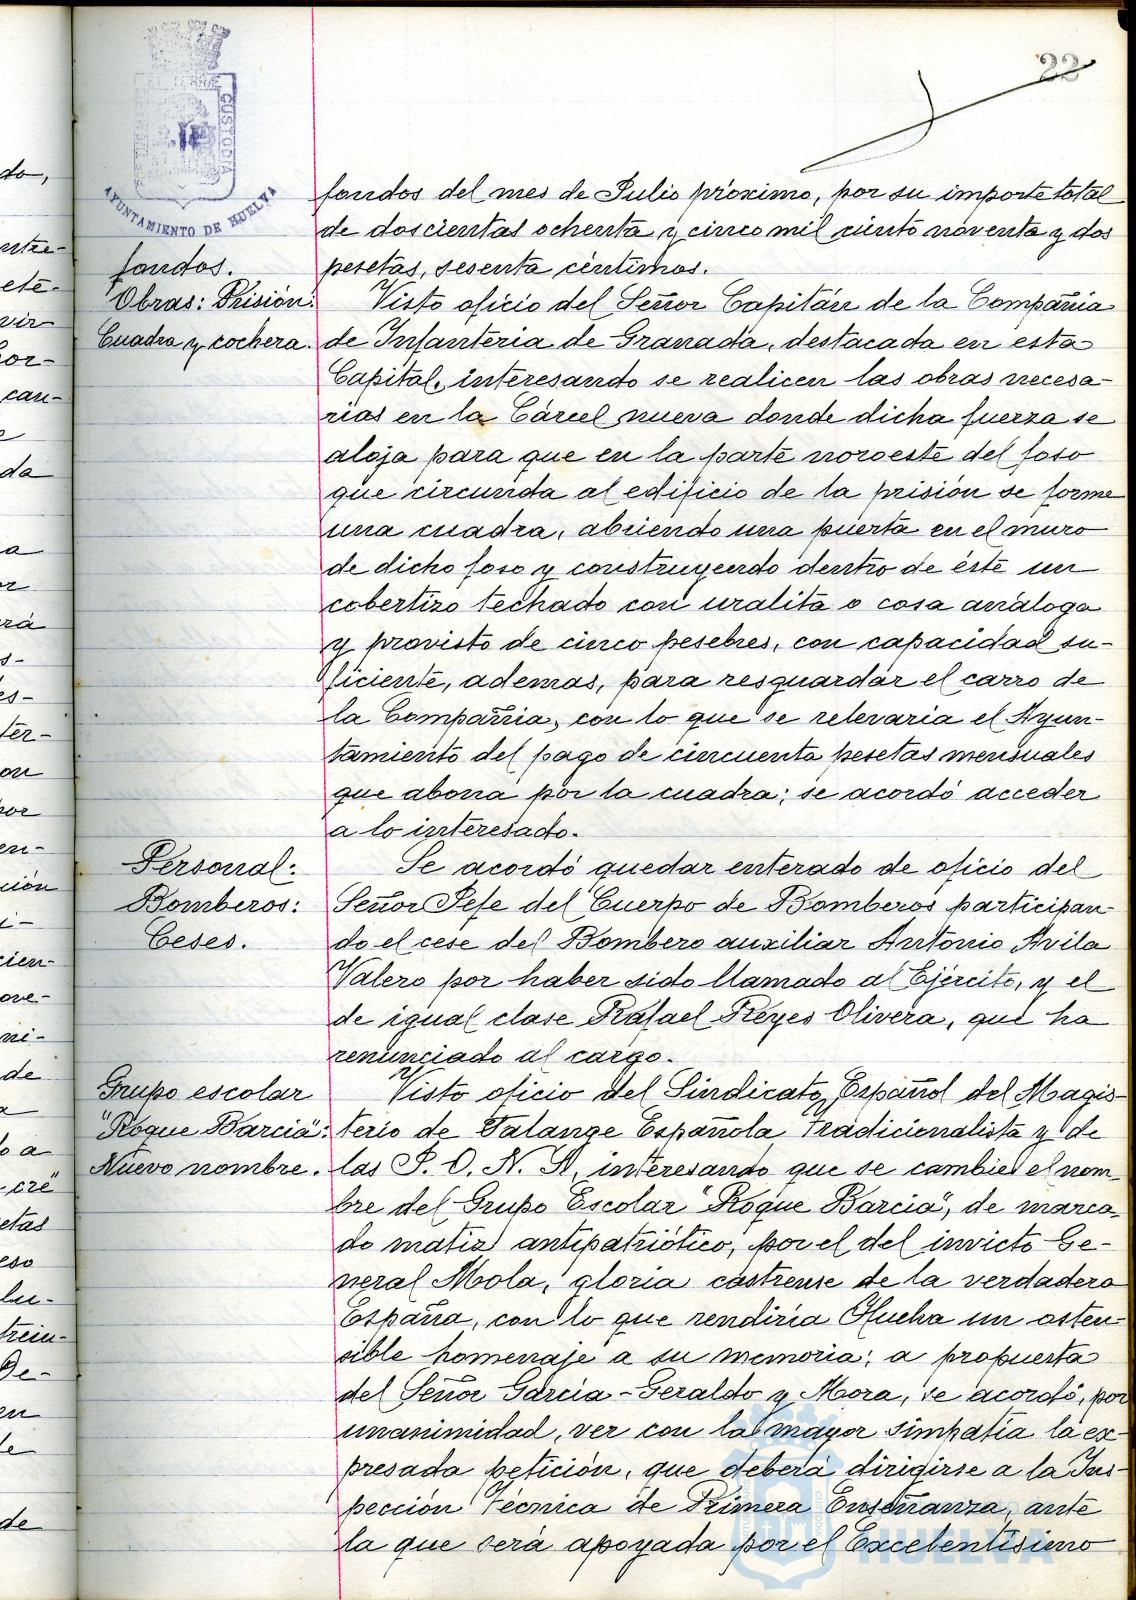 22
AYUNTAMIENTO DE HUELVA
CUSTODIA
fondos del mes de Julio próximo, por su importe total
de doscientas ochenta y cinco mil ciento noventa y dos
fondos.
pesetas, sesenta céntimos.
Obras: Prisión:
Cuadra y cochera.
Visto oficio del Señor Capitán de la Compañia
de Infanteria de Granada, destacada en esta
Capital, interesando se realicen las obras necesa-
rias en la Cárcel nueva donde dicha fuerza se
aloja para que en la parte noroeste del foso
que circunda al edificio de la prisión se forme
una cuadra, abriendo una puerta en el muro
de dicho foso y construyendo dentro de éste un
cobertizo techado con uralita o cosa análoga
y provisto de cinco pesebres, con capacidad su-
ficiente, ademas, para resguardar el carro de
la Compañia, con lo que se relevaria el Ayun-
tamiento del pago de cincuenta pesetas mensuales
que abona por la cuadra; se acordó acceder
a lo interesado.
Personal:
Bomberos:
Ceses.
Se acordó quedar enterado de oficio del
Señor Jefe del Cuerpo de Bomberos participan-
do el cese del Bombero auxiliar Antonio Avila
Valero por haber sido llamado al Ejército, y el
de igual clase Rafael Reyes Olivera, que ha
renunciado al cargo.
Grupo escolar
"Roque Barcia":
Nuevo nombre.
Visto oficio del Sindicato Español del Magis-
terio de Falange Española Tradicionalista y de
las J. O. N. S., interesando que se cambie el nom-
bre del Grupo Escolar "Roque Barcia", de marca-
do matiz antipatriótico, por el del invicto Ge-
neral Mola, gloria castrense de la verdadera
España, con lo que rendiría Huelva un osten-
sible homenaje a su memoria; a propuesta
del Señor García-Geraldo y Mora, se acordó, por
unanimidad, ver con la mayor simpatía la ex-
presada petición, que deberá dirigirse a la Ins-
pección Técnica de Primera Enseñanza, ante
la que será apoyada por el Excelentísimo
HUELVA